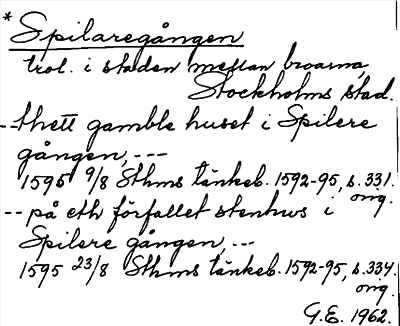 * Spilaregången
trol. i staden mellan broarna,
Stockholms stad.
--thett gamble huset i Spilere
gången,---
1595 9/8 Sthms tänkeb. 1592-95, s. 331.
orig.
-- på eth förfallet stenhws i
Spilere gången,--
1595 23/8 Sthms tänkeb. 1592-95, s. 334.
orig.
G.E. 1962.